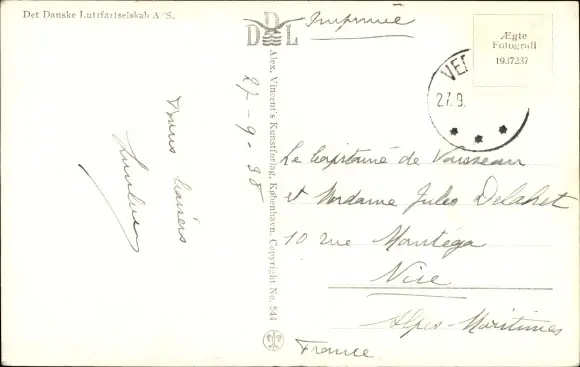 Det Danske Luftfartselskab A/S.
DDL
Imprimé
Ægte
Fotografi
1937237
27.9.
Alex. Vincent's Kunstforlag, København. Copyright No. 544
27-9-38
Bons baisers
Le Capitaine de Vaisseau
et Madame Jules Delahet
10 rue Montéga
Nice
Alpes-Maritimes
France